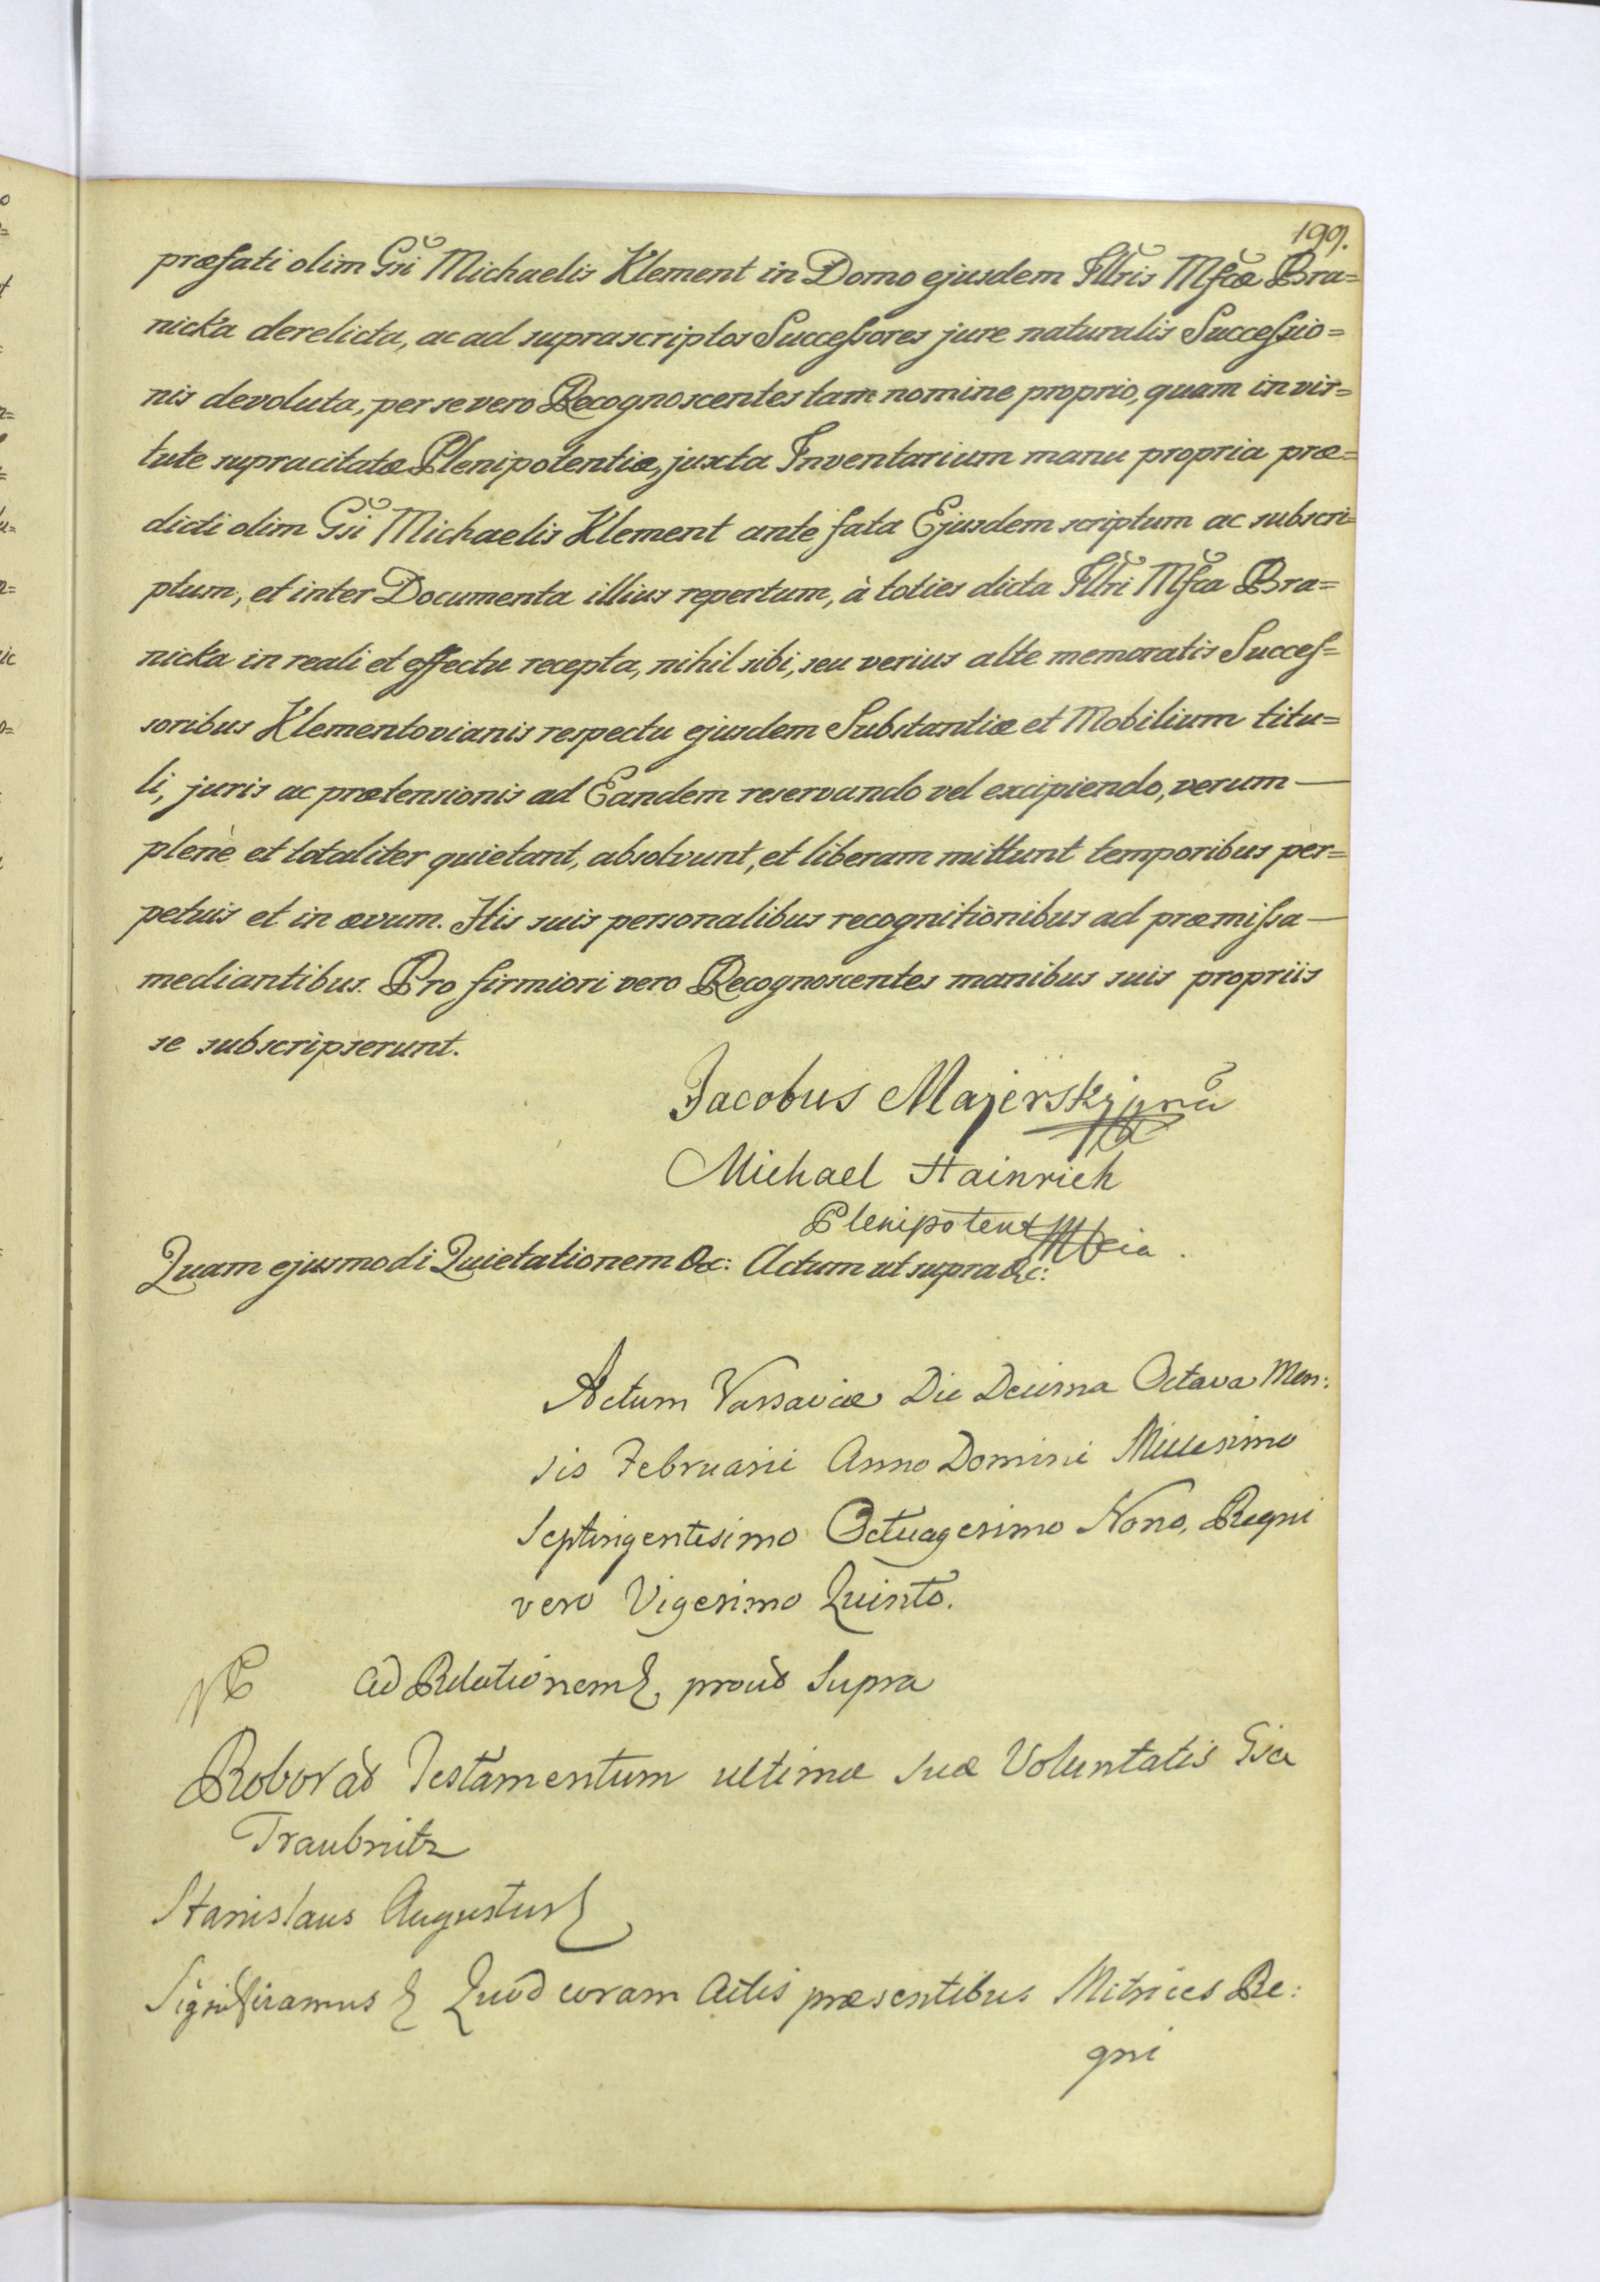 199.
præfati olim Gsi Michaelis Klement in Domo ejusdem Illris Mfcæ Bra=
nicka derelicta, ac ad suprascriptos Successores jure naturalis Successio=
nis devoluta, per se vero Recognoscentes tam nomine proprio, quam in vir=
tute supracitatæ Plenipotentiæ, juxta Inventarium manu propria præ=
dicti olim Gsi Michaelis Klement ante fata Ejusdem scriptum ac subscri=
ptum, et inter Documenta illius repertum, à toties dicta Illri Mfca Bra=
nicka in reali et effectu recepta, nihil sibi, seu verius alte memoratis Succes=
soribus Klementovianis respectu ejusdem Substantiæ et Mobilium titu=
li, juris ac prætensionis ad Eandem reservando vel excipiendo, verum —
plenè et totaliter quietant, absolvunt, et liberam mittunt temporibus per=
petuis et in ævum. His suis personalibus recognitionibus ad præmissa —
mediantibus. Pro firmiori vero Recognoscentes manibus suis propriis
se subscripserunt.
Jacobus Majerskj
Michael Hainrich
Plenipotent
Quam ejusmodi Quietationem &c: Actum ut supra &c:
Actum Varsaviæ Die Decima Octava Men:
sis Februarii Anno Domini Millesimo
Septingentesimo Octuagesimo Nono, Regni
vero Vigesimo Quinto.
Ad Relationem prout Supra
Roborat Testamentum ultimæ suæ Voluntatis Gsa
Traubnitz
Stanislaus Augustus
Significamus Quod coram Actis præsentibus Mitrices Re:
gni